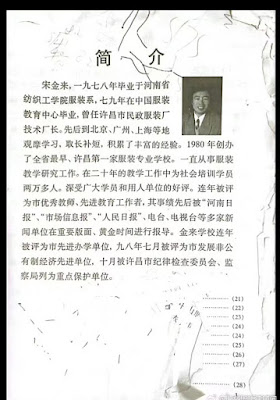 简 介
宋金来,一九七八年毕业于河南省
纺织工学院服装系,七九年在中国服装
教育中心毕业,曾任许昌市民政服装厂
技术厂长。先后到北京、广州、上海等地
观摩学习,取长补短,积累了丰富的经验。1980 年创办
了全省最早、许昌第一家服装专业学校。一直从事服装
教学研究工作。在二十年的教学工作中为社会培训学员
两万多人。深受广大学员和用人单位的好评。连年被评
为市优秀教师、先进教育工作者,其事绩先后被“河南日
报”、“市场信息报”、“人民日报”、电台、电视台等多家新
闻单位在重要版面、黄金时间进行报导。金来学校连年
被评为市先进办学单位,九八年七月被评为市发展非公
有制经济先进单位,十月被许昌市纪律检查委员会、监
察局列为重点保护单位。
(21)
(22)
(23)
(24)
(25)
(26)
(27)
(28)
1